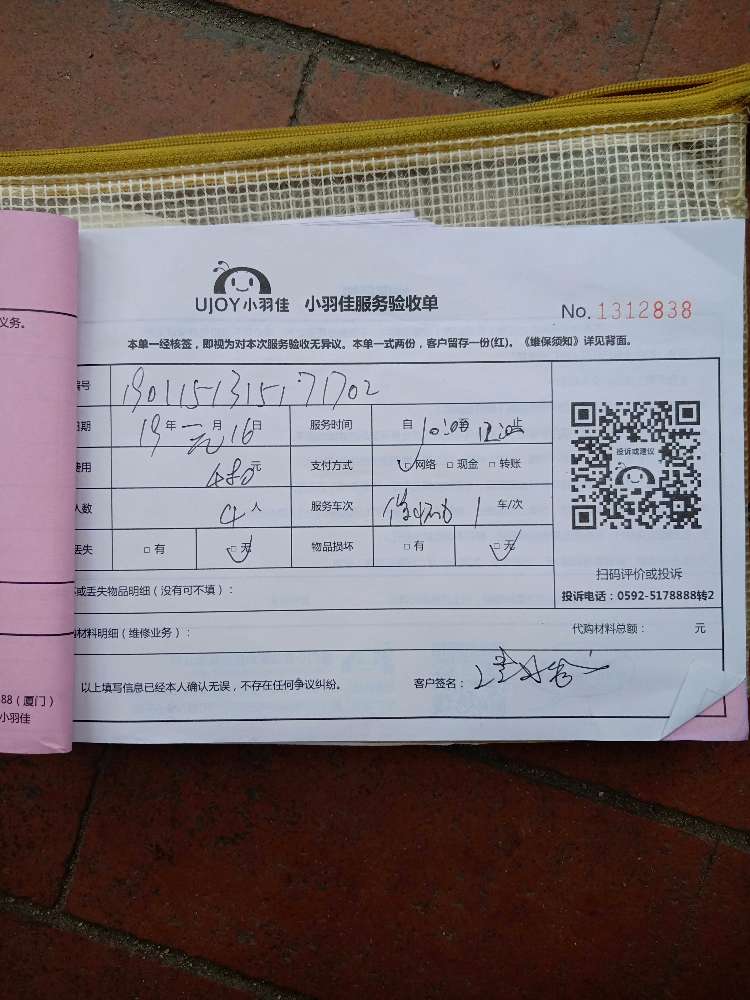 义务。
UJOY小羽佳 小羽佳服务验收单
No. 1312838
本单一经核签，即视为对本次服务验收无异议。本单一式两份，客户留存一份(红)。《维保须知》详见背面。
编号 1901151315171702
日期 19年 元月16日 服务时间 自 10:00 至 12:00 止
费用 480元 支付方式 □网络 □现金 □转账
人数 4人 服务车次 1 车/次
丢失 □有 □无 物品损坏 □有 □无
投诉或建议
扫码评价或投诉
投诉电话：0592-5178888转2
坏或丢失物品明细（没有可不填）：
购材料明细（维修业务）： 代购材料总额： 元
以上填写信息已经本人确认无误，不存在任何争议纠纷。 客户签名：
88（厦门）
小羽佳